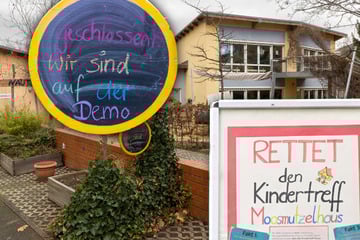 geschlossen!
wir sind
auf der
Demo
RETTET
den
Kindertreff
Moosmutzelhaus